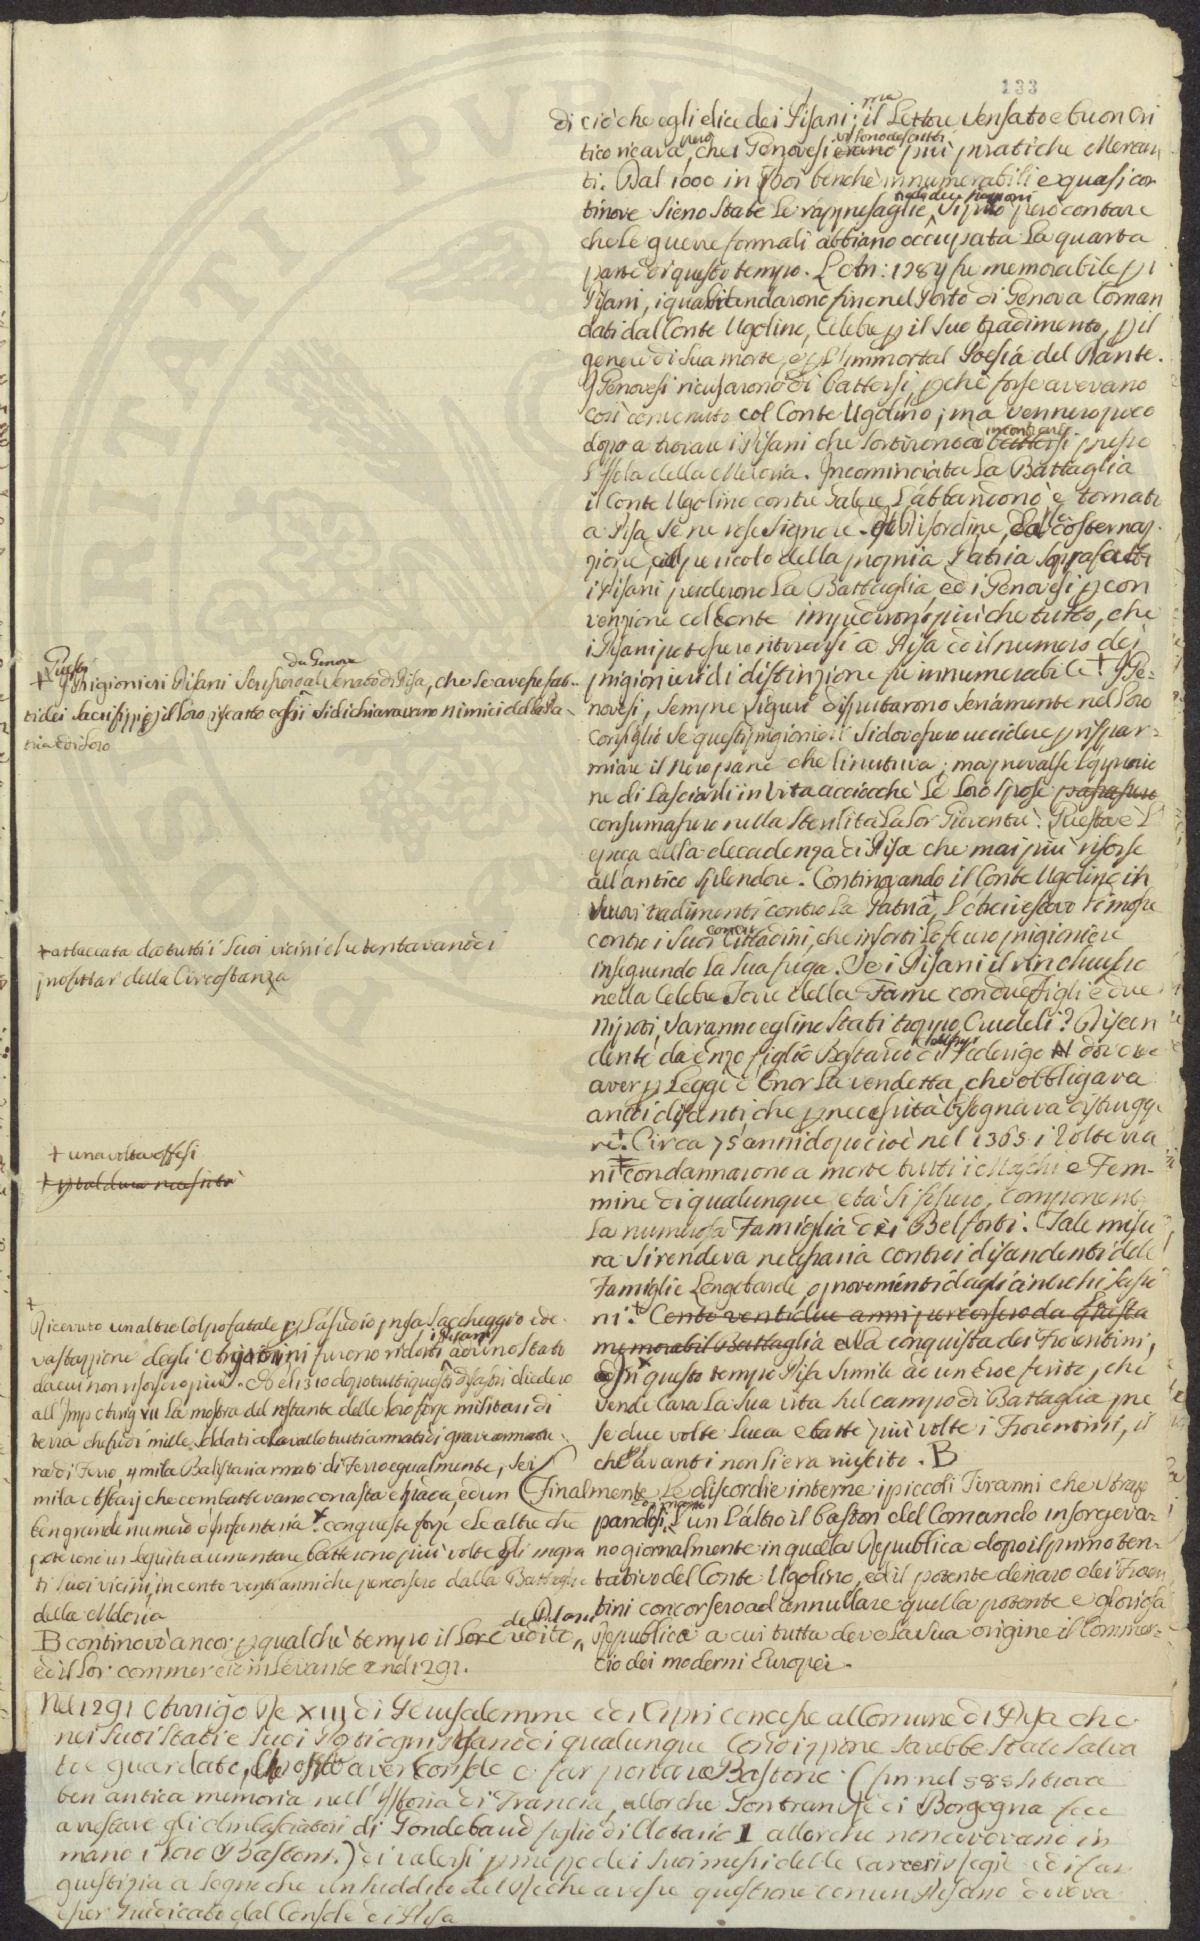 133
di ciò che egli dice dei Pisani; ma il Lettore versato e buon Cri
tico ricava però, che i Genovesi vi sono descritti erano più pratiche Mercan
ti. Dal 1000 in poi benchè innumerabili e quasi con
tinove sieno state le rappresaglie, si può però contare
che le guerre formali abbiano occupata la quarta
parte di questo tempo. L'An: 1284 fu memorabile p i
Pisani, i quali andarono fino nel Porto di Genova Coman
dati dal Conte Ugolino, Celebre p il suo tradimento, p il
genere di sua morte, e p l'immortal Poesia del Dante.
I Genovesi ricusarono di battersi, pchè forse avevano
così convenuto col Conte Ugolino; ma vennero poco
dopo a trovare i Pisani che sortirono a battersi incontrarli presso
l'Isola della Meloria. Incominciata la Battaglia
il Conte Ugolino con tre Galere l'abbandonò e tornato
a Pisa se ne rese Signore. Il Disordine, la costerna
zione, il pericolo della propria Patria
i Pisani perderono la Battaglia, ed i Genovesi p con
venzione col Conte impedirono più che tutto, che
i Pisani potessero ritirarsi a Pisa ed il numero dei
prigionieri di distinzione fu innumerabile + I Ge=
novesi, sempre Liguri disputarono seriamente nel loro
Consiglio se questi prigionieri si dovessero uccidere p rispar=
miare il nero pane che li nutriva; ma prevalse l'opinio
ne di lasciarli in vita acciocchè le loro spose passassero
consumassero nella sterilità la lor Gioventù. Questa è l'
epoca della decadenza di Pisa che mai più risorse
all'antico splendore. Continovando il Conte Ugolino in
nuovi tradimenti contro la Patria +, l'Arcivescovo
contro i suoi Concittadini, che insorti lo fecero prigioniere
inseguendo la sua fuga. Se i Pisani il rinchiusero
nella Celebre Torre della Fame con due figli e due
Nipoti, saranno eglino stati troppo Crudeli? Discen
dente da Enzo figlio Bastardo di Federigo II dove
aver p Legge d'Onor la vendetta, che obbligava
anco i discenti che p necessità bisognava distrugge
re +. Circa 75 anni dopo cioè nel 1365 i Volterra
ni condannarono a morte tutti i Maschi e Fem=
mine di qualunque età si fossero, componenti
la numerosa Famiglia dei Belforti. Tale misu
ra si rendeva necessaria contro i discendenti delle
Famiglie Longobarde, o provenienti dagli antichi
ni. + Cento ventidue anni percorsero da questa
memorabil Battaglia alla conquista dei Fiorentini,
In questo tempo Pisa simile ad un Eroe ferito, che
vende cara la sua vita sul campo di Battaglia pre
se due volte Lucca e battè più volte i Fiorentini, il
che avanti non li era riuscito. B
Finalmente le discordie interne i piccoli Tiranni che strap
pandosi l'un l'altro il baston del Comando insorgeva=
no giornalmente in quella Repubblica dopo il primo ten=
tativo del Conte Ugolino, ed il potente denaro dei Fioren
tini concorsero ad annullare quella potente e gloriosa
Repubblica a cui tutta deve la sua origine il Commer=
cio dei moderni Europei.
+ Questi Prigionieri Pisani scrissero da Genova al Senato di Pisa, che se avesse fat=
ti dei sacrifizzi p il loro riscatto essi si dichiaravano nimici della Pa=
tria e di loro
+ attaccata da tutti i suoi vicini che tentavano di
profittar della Circostanza
+ una volta offesi
+ p tal dura necessità
+
Ricevuto un altro Colpo fatale p l'assedio presa saccheggio e de=
vastazzione degli furono ridotti i Pisani a uno stato
da cui non risorsero più. Nel 1310 dopo tutti questi disastri diedero
all'Imp Arrig VII la mostra del restante delle loro forze militari di
terra che fu di mille soldati a Cavallo tutti armati di grave armatu=
ra di Ferro, 4 mila Balistari armati di Ferro egualmente, sei
mila Astarj che combattevano con asta e picca, ed un
ben grande numero d'Infanteria +. con queste forze e le altre che
poterono in seguito aumentare batterono più volte gli ingra
ti suoi vicini, in cento venti anni che percorsero dalla Battaglia
della Meloria
B continovò ancor p qualchè tempo il loro credito,
ed il lor commercio in Levante e nel 1291.
Nel 1291 Arrigo Re XIII di Gerusalemme e di Cipri concesse al Comune di Pisa che
nei suoi Stati e suoi ogni Pisano di qualunque Condizione sarebbe stato salva
to e guardato, aver Console e far portare Bastone. (fin nel 585 si trova
ben antica memoria nell'Istoria di Francia, allorche Gontran Re di Borgogna fece
arrestare gli Ambasciatori di Gondebaud figlio di Clotario I allorchè non avevano in
mano i loro Bastoni.) di valersi p mezzo dei suoi messi delle carceri regie e di far
giustizia a segno che un suddito del Re che avesse questione con un Pisano doveva
esser Giudicato dal Console di Pisa